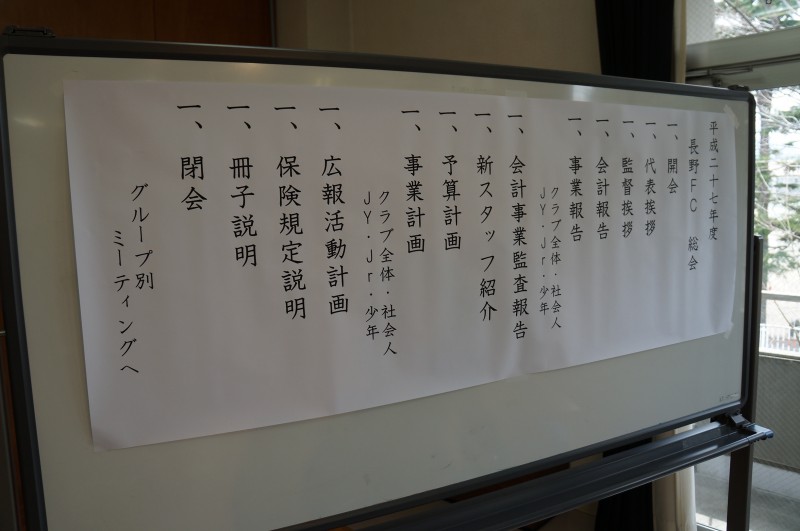 平成二十七年度
長野FC 総会
一、開会
一、代表挨拶
一、監督挨拶
一、会計報告
一、事業報告
クラブ全体・社会人
JY・Jr・少年
一、会計事業監査報告
一、新スタッフ紹介
一、予算計画
一、事業計画
クラブ全体・社会人
JY・Jr・少年
一、広報活動計画
一、保険規定説明
一、冊子説明
一、閉会
グループ別
ミーティングへ